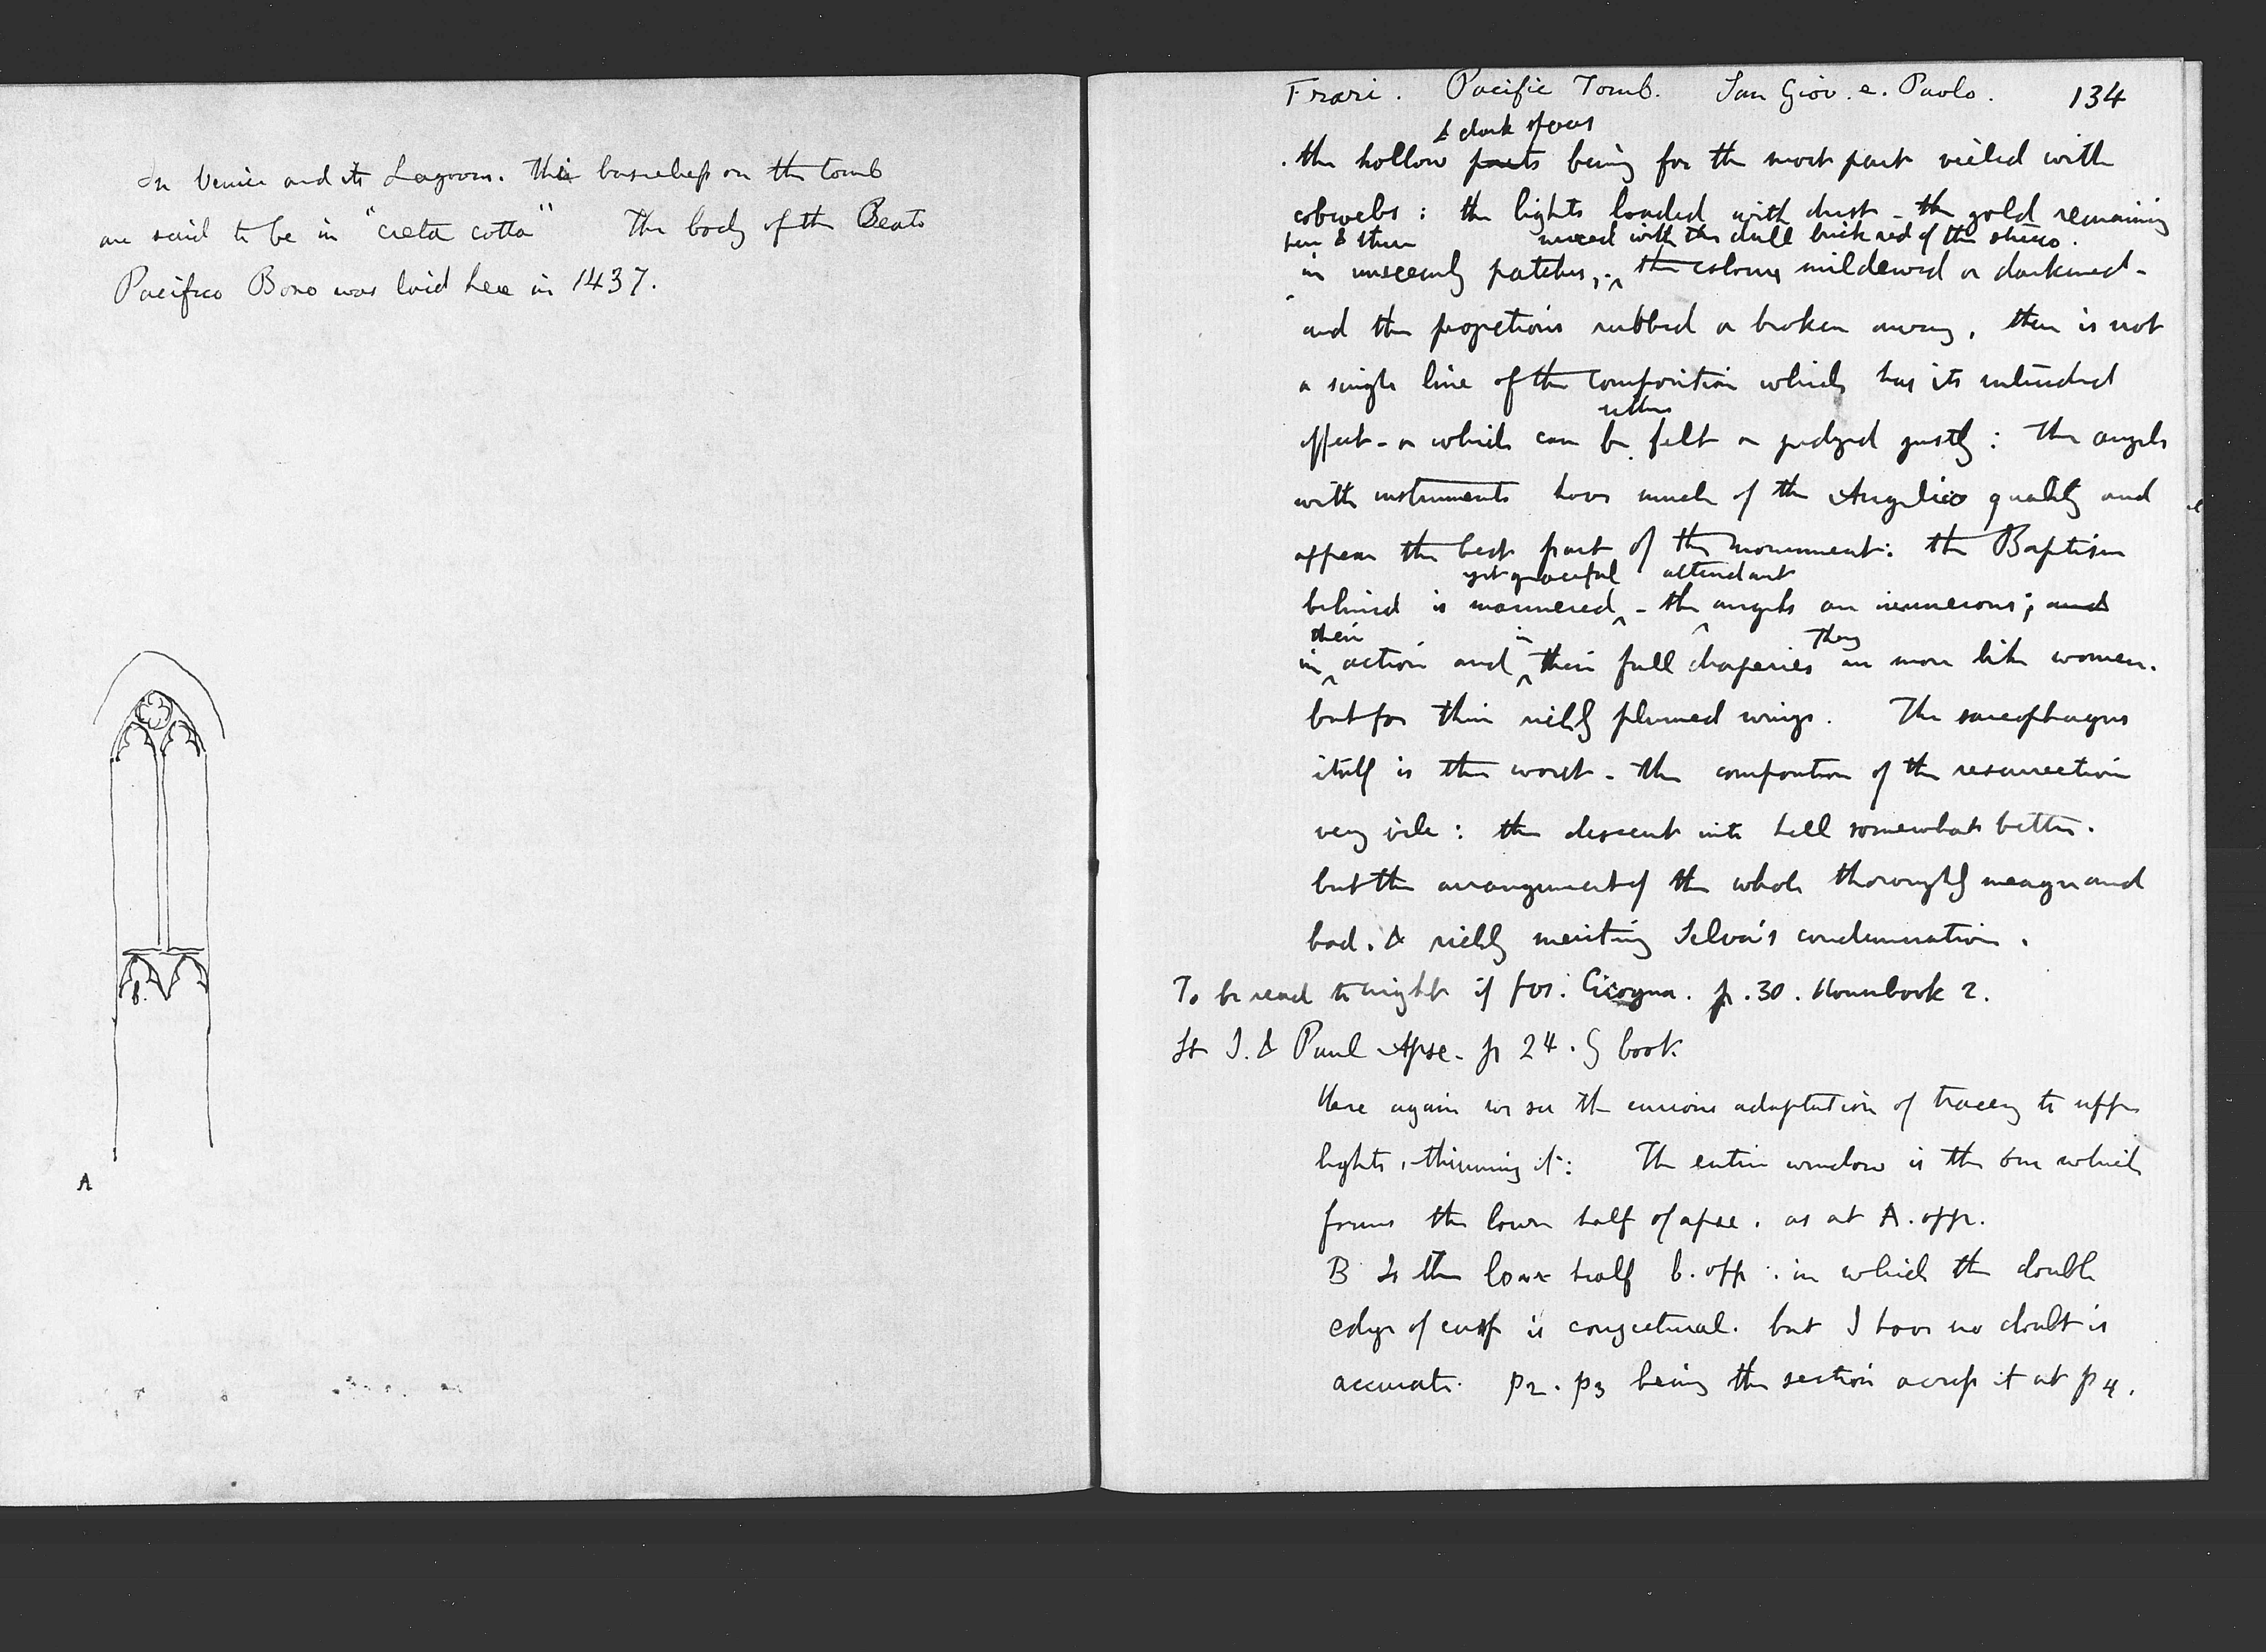 In Venice and its Lagoons. The basreliefs on the tomb
are said to be in "creta cotta" The body of the Beato
Pacifico Bono was laid here in 1437.
b.
A
Frari. Pacific Tomb. San Giov. e. Paolo. 134
& dark spaces
the hollow parts being for the most part veiled with
cobwebs: the lights loaded with dust - the gold remaining
here & there mixed with the dull brick red of the stucco.
in unseemly patches, the colours mildewed or darkened -
and the projections rubbed or broken away, there is not
a single line of the composition which has its intended
effect - or which can be felt or judged justly: The angels
either
with instruments have much of the Angelico quality and
appear the best part of the monument: the Baptism
yet graceful attendant
behind is mannered - the angels are numerous; and
their in They
in action and their full draperies are more like women.
but for their richly plumed wings. The sarcophagus
itself is the worst - the composition of the resurrection
very vile: the descent into hell somewhat better.
but the arrangement of the whole thoroughly meagre and
bad. & richly meriting Selva's condemnation.
To be read tonight if pos. Cicogna. p. 30. Housebook 2.
St J. & Paul Apse. p 24. G book
Here again we see the curious adaptation of tracery to upper
lights, thinning it: The entire window is the one which
forms the lower half of apse. as at A. opp.
B Is the lower half b. opp. in which the double
edge of cusp is conjectural. but I have no doubt is
accurate. p2. p3 being the section across it at p4.